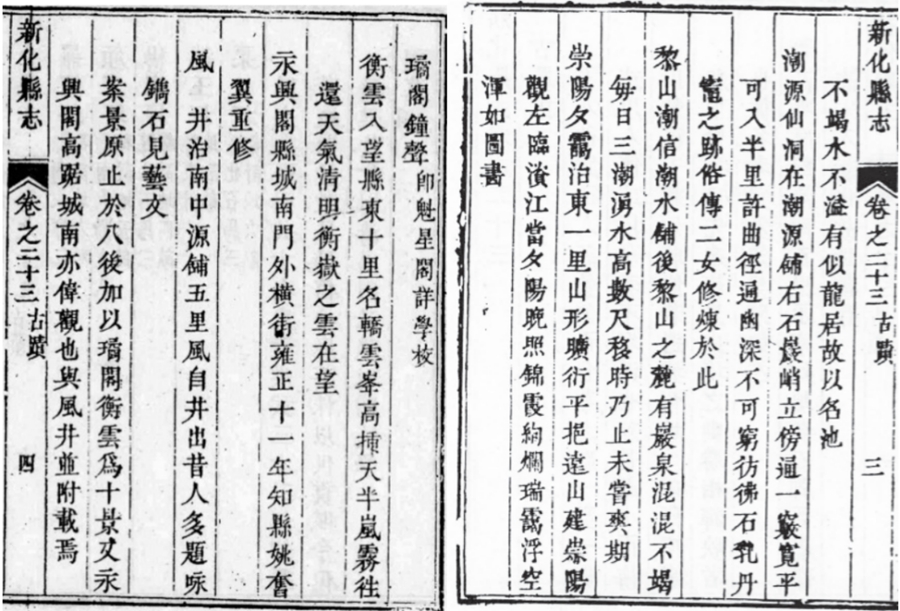 新化縣志 卷之二十三 古蹟 三
不竭水不溢有似龍居故以名池
潮源仙洞在潮源舖右石巖峭立傍通一竅寬平
可入半里許曲徑通幽深不可窮彷彿石乳丹
竈之跡俗傳二女修煉於此
黎山潮信潮水舖後黎山之麓有巖泉混混不竭
每日三潮湧水高數尺移時乃止未嘗爽期
崇陽夕靄治東一里山形曠衍平挹遠山建崇陽
觀左臨澬江當夕陽晚照錦霞絢爛瑞靄浮空
渾如圖畫
璚閣鐘聲即魁星閣詳學校
衡雲入望縣東十里名轎雲峯高挿天半嵐霧徃
還天氣清明衡嶽之雲在望
永興閣縣城南門外橫街雍正十一年知縣姚奮
翼重修
風井治南中源舖五里風自井出昔人多題咏
鐫石見藝文
案景原止於八後加以璚閣衡雲爲十景又永
興閣高踞城南亦偉觀也與風井並附載焉
新化縣志 卷之二十三 古蹟 四